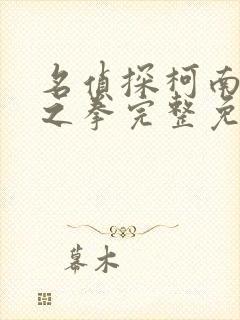 名侦探柯南
之拳完整免
幕木